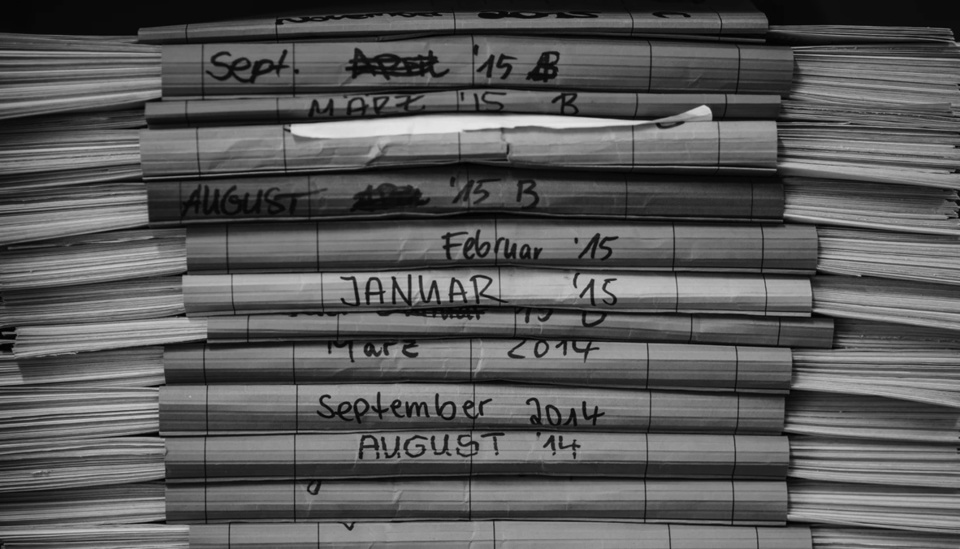 Sept. '15 B
MÄRZ '15 B
AUGUST '15 B
Februar '15
JANUAR '15
März 2014
September 2014
AUGUST '14